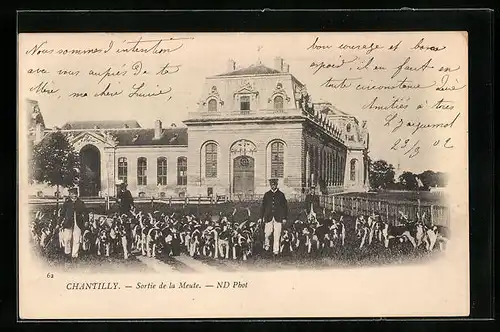 Nous sommes d'intention
avec vous auprès de ta
Mère, ma chère
bon courage et bonne
il en faut en
toute circonstance
amitiés à tres
62
CHANTILLY. — Sortie de la Meute. — ND Phot